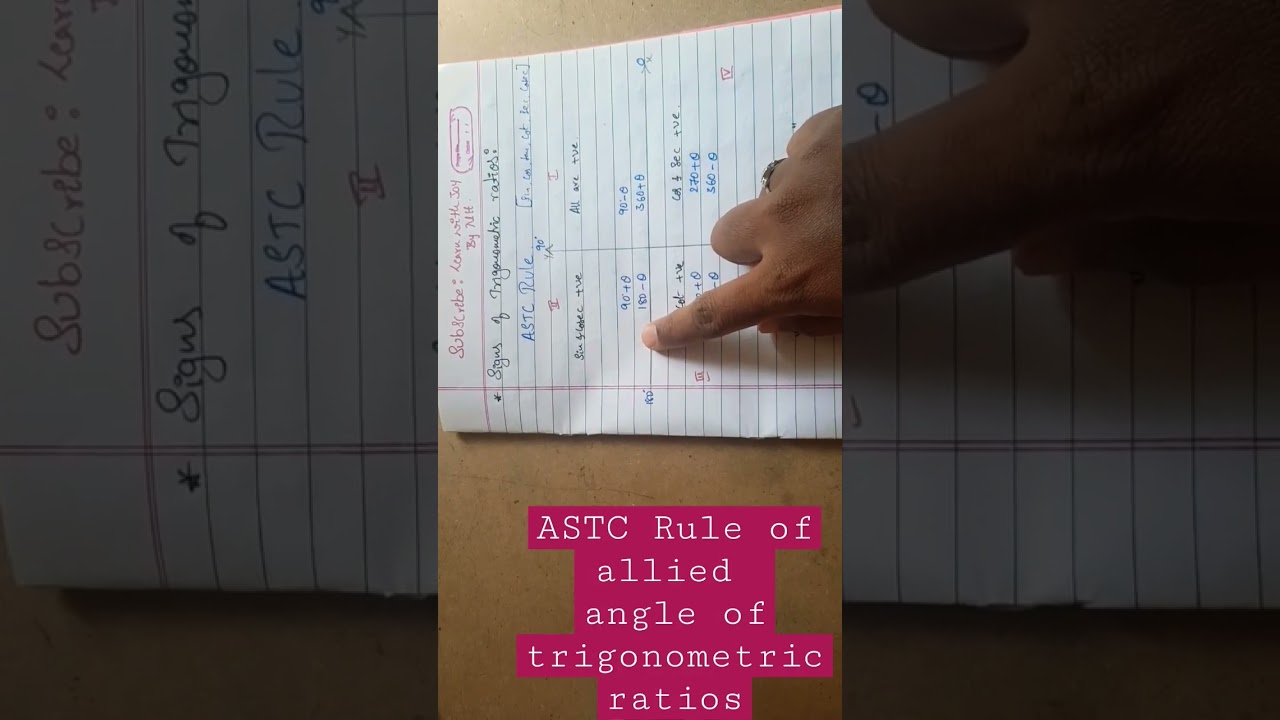 Subscribe: Learn with Joy
By NH.
* Signs of Trigonometric ratios:
ASTC Rule [Sin, Cos, tan, Cot, Sec, Cosec]
90°
II
I
Sin & Cosec +ve
All are +ve
90°+θ
90°-θ
180-θ
360+θ
180°
Cot +ve
Cos & Sec +ve.
270+θ
-θ
360-θ
III
IV
ASTC Rule of
allied
angle of
trigonometric
ratios